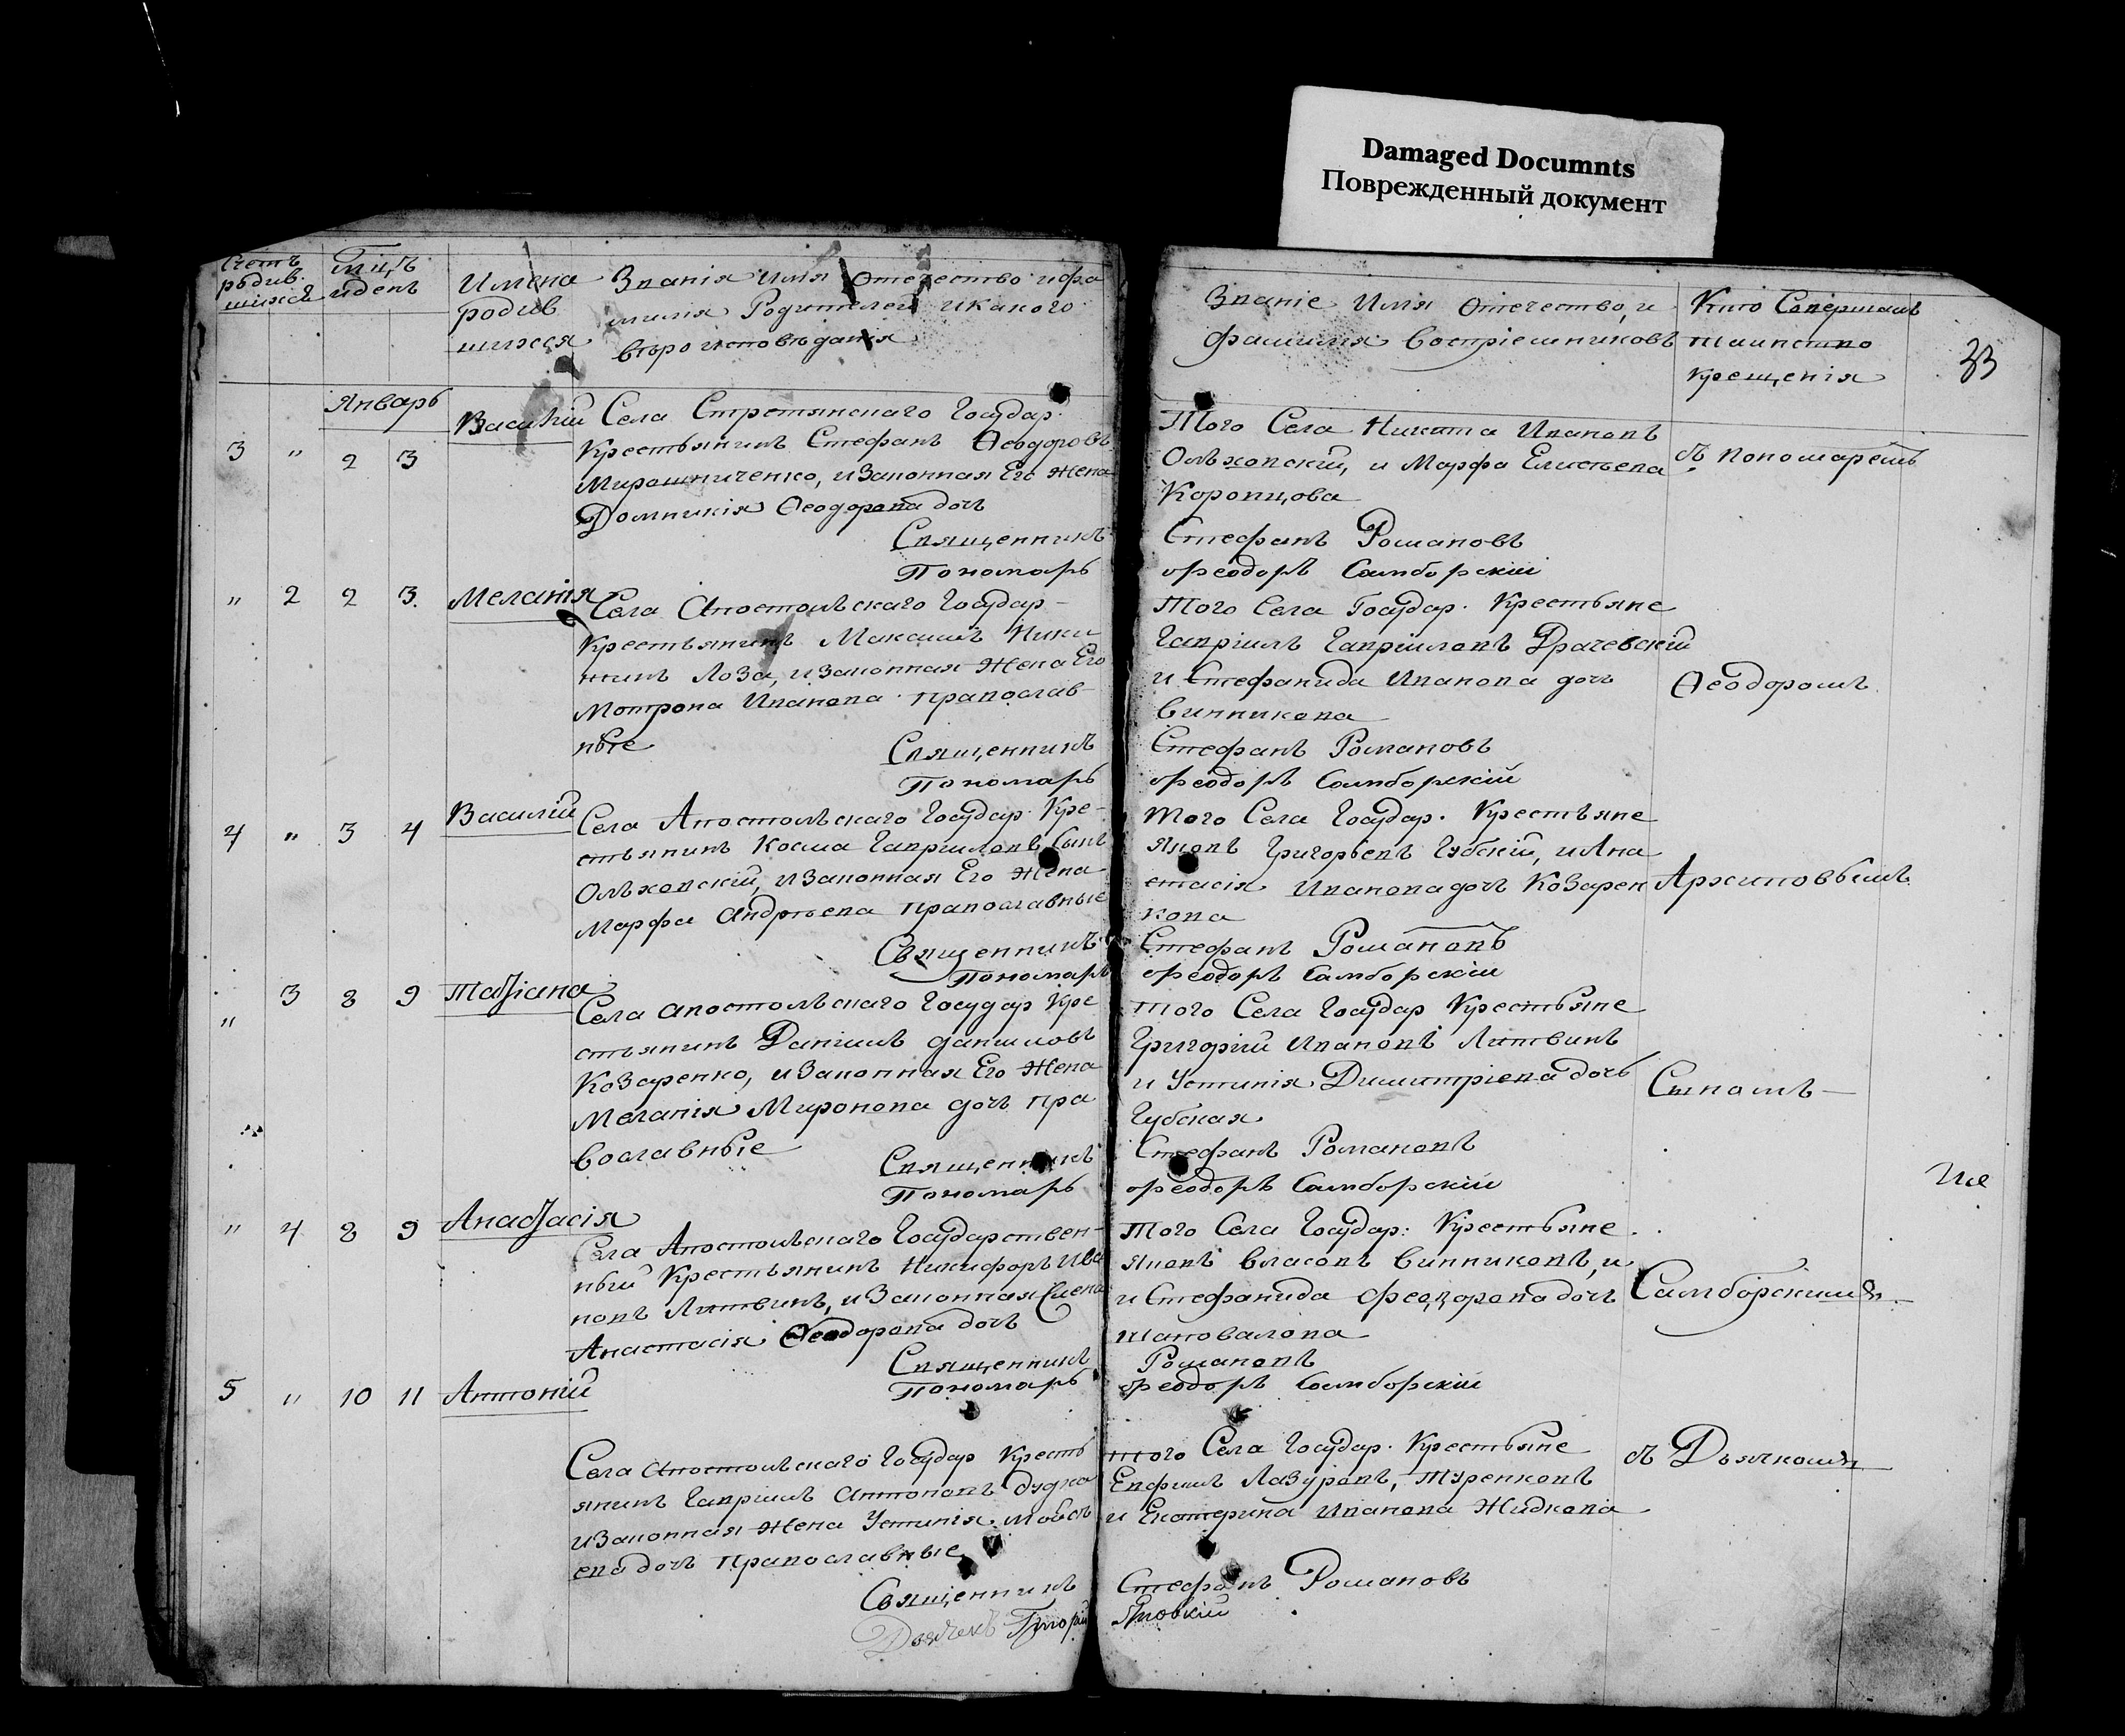 Damaged Documnts
Поврежденный документ
Счетъ родив. шихся
Мц.ъ иденъ
Имена родив шихся
Званія имя Отечество ифа
милия Родителей икакого
въроисповъданія
Званіе Имя Отечество, и
фамилия Воспріемниковъ
Кто Совершалъ
таинство
крещенія
33
Январь
3 " 2 3
Василій
Села Стретянскаго Государ.
Крестьянинъ Стефанъ Ѳеодоровъ
Мирошниченко, иЗаконная Его Жена
Домникія Ѳеодорова дочъ
Священникъ
Пономарь
Того Села Никита Ивановъ
Ольховскій, и Марфа Елисъева
Коропцова
Стефанъ Романовъ
Феодоръ Самборскій
съ пономаремъ
" 2 2 3.
Меланія
Села Апостольскаго Государ-
Крестьянинъ Максимъ Ники
тинъ Лоза, иЗаконная Жена Его
Мотрона Иванова православ-
ные
Священникъ
Пономарь
Того Села Государ. Крестьяне
Гавріилъ Гавріиловъ Драчевскій
и Стефанида Иванова дочъ
Винникова
Стефанъ Романовъ
Феодоръ Самборскій
Ѳеодоромъ
4 " 3 4
Василій
Села Апостольскаго Государ. Кре-
стьянинъ Косма Гавриловъ Сынъ
Ольховскій, иЗаконная Его Жена
Марфа Андръева православные
Священникъ
Пономаръ
того Села Государ. Крестьяне
Яковъ Григорьевъ Губскій, иАна
стасія Иванова дочъ Козарен
кова
Стефанъ Романовъ
Феодоръ Самборскій
Архиповымъ
" 3 8 9
Татіана
Села апостольскаго Государ Кре
стьянинъ Даніилъ даниловъ
Козаренко, иЗаконная Его Жена
Меланія Миронова дочъ пра
вославные
Священникъ
Пономарь
того Села Государ Крестьяне
Григорій Ивановъ Литвинъ
и Устинія Димитріева дочь
Губская
Стефанъ Романовъ
Феодоръ Самборскій
Сыномъ
" 4 8 9
Анастасія
Села Апостольскаго Государствен-
ный Крестьянинъ Никифоръ Ива
новъ Литвинъ, иЗаконная Жена
Анастасія Ѳеодорова дочъ
Священникъ
Пономарь
Того Села Государ: Крестьяне
Яковъ Власовъ Винниковъ, и
и Стефанида Феодорова дочъ
шаповалова
Романовъ
Феодоръ Самборскій
Самборскимъ
5 " 10 11
Антоній
Села Апостольскаго Государ Кресть
янинъ Гавріилъ Антоновъ Дудка
иЗаконная Жена Устинія Мойсъ
ева дочъ православные
Священникъ
Дьячекъ Григорій
того Села Государ. Крестьяне
Евфимъ Лазуровъ, Туренковъ
и Екатерина Иванова Жидкова
Стефанъ Романовъ
съ Дьячкомъ